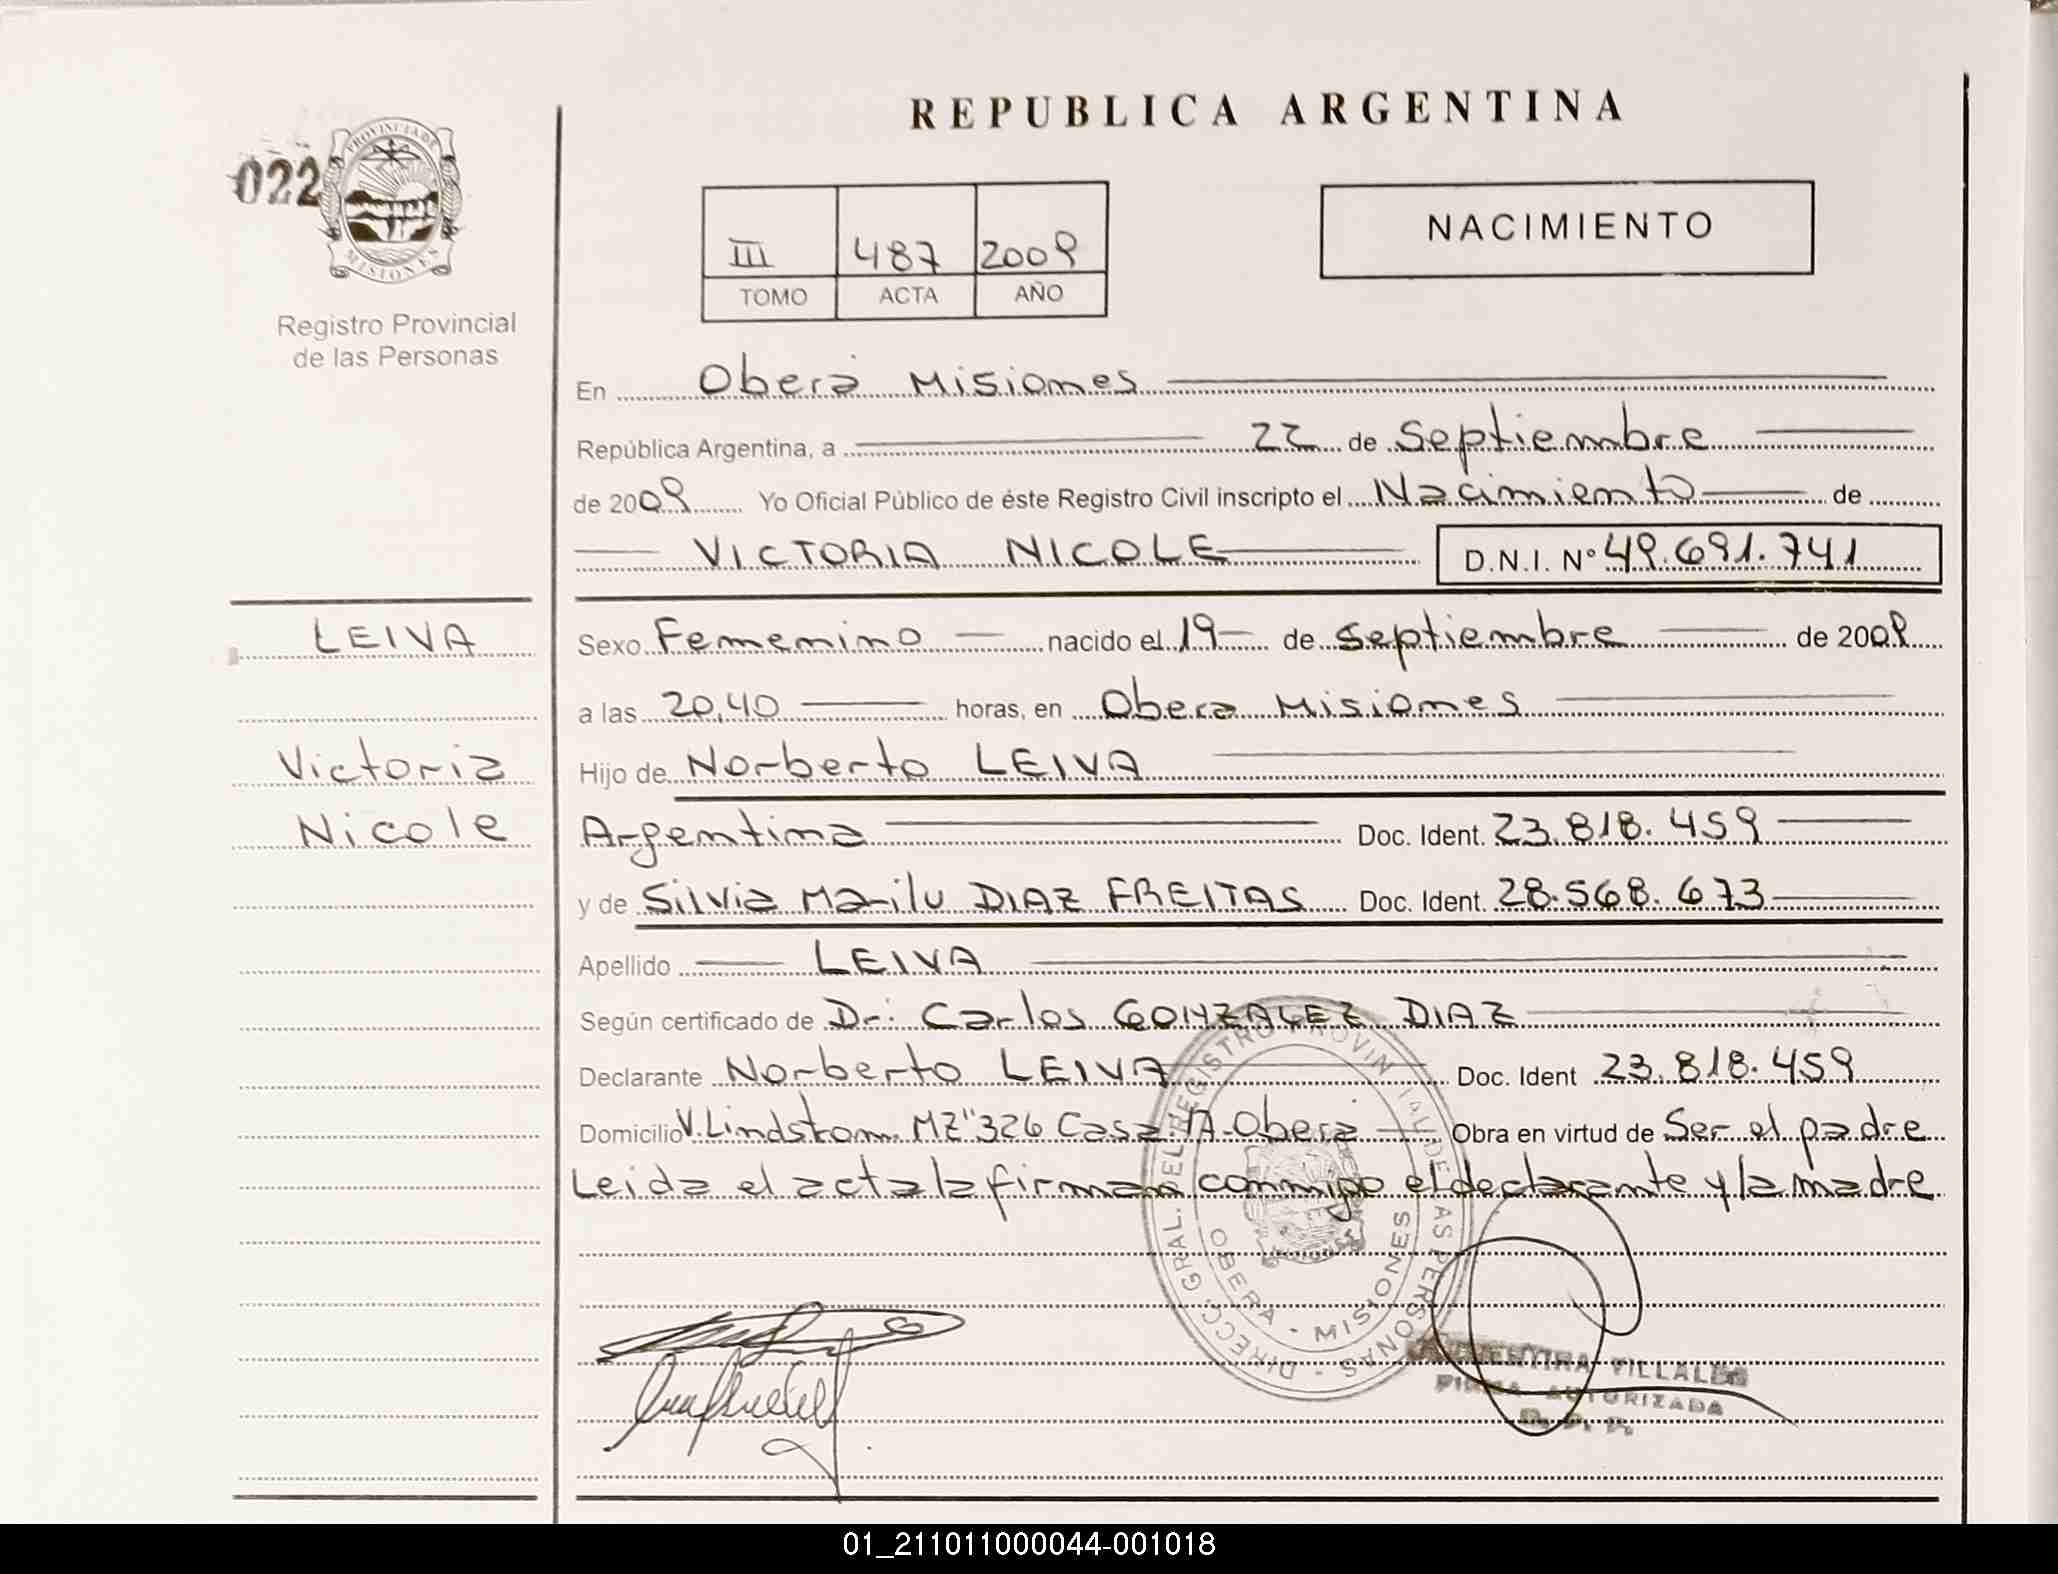 REPUBLICA ARGENTINA
022
PROVINCIA DE
MISIONES
Registro Provincial
de las Personas
III 487 2009
TOMO ACTA AÑO
NACIMIENTO
En Oberá Misiones
República Argentina, a 22 de Septiembre
de 2009 Yo Oficial Público de éste Registro Civil inscripto el Nacimiento de
VICTORIA NICOLE D.N.I. Nº 49.691.741
LEIVA
Victoria
Nicole
Sexo Femenino nacido el 19 de Septiembre de 2009
a las 20,40 horas, en Obera Misiones
Hijo de Norberto LEIVA
Argentina Doc. Ident. 23.818.459
y de Silvia Marilu DIAZ FREITAS Doc. Ident. 28.568.673
Apellido LEIVA
Según certificado de Dr: Carlos GONZALEZ DIAZ
Declarante Norberto LEIVA Doc. Ident 23.818.459
Domicilio V. Lindstrom MZ"326 Casa 17-Oberá Obra en virtud de Ser el padre
Leida el acta la firman conmigo el declarante y la madre
DIRECC. GRAL. EL REGISTRO PROVINCIAL DE LAS PERSONAS
OBERA - MISIONES
VILLALBA
FIRMA AUTORIZADA
01_211011000044-001018